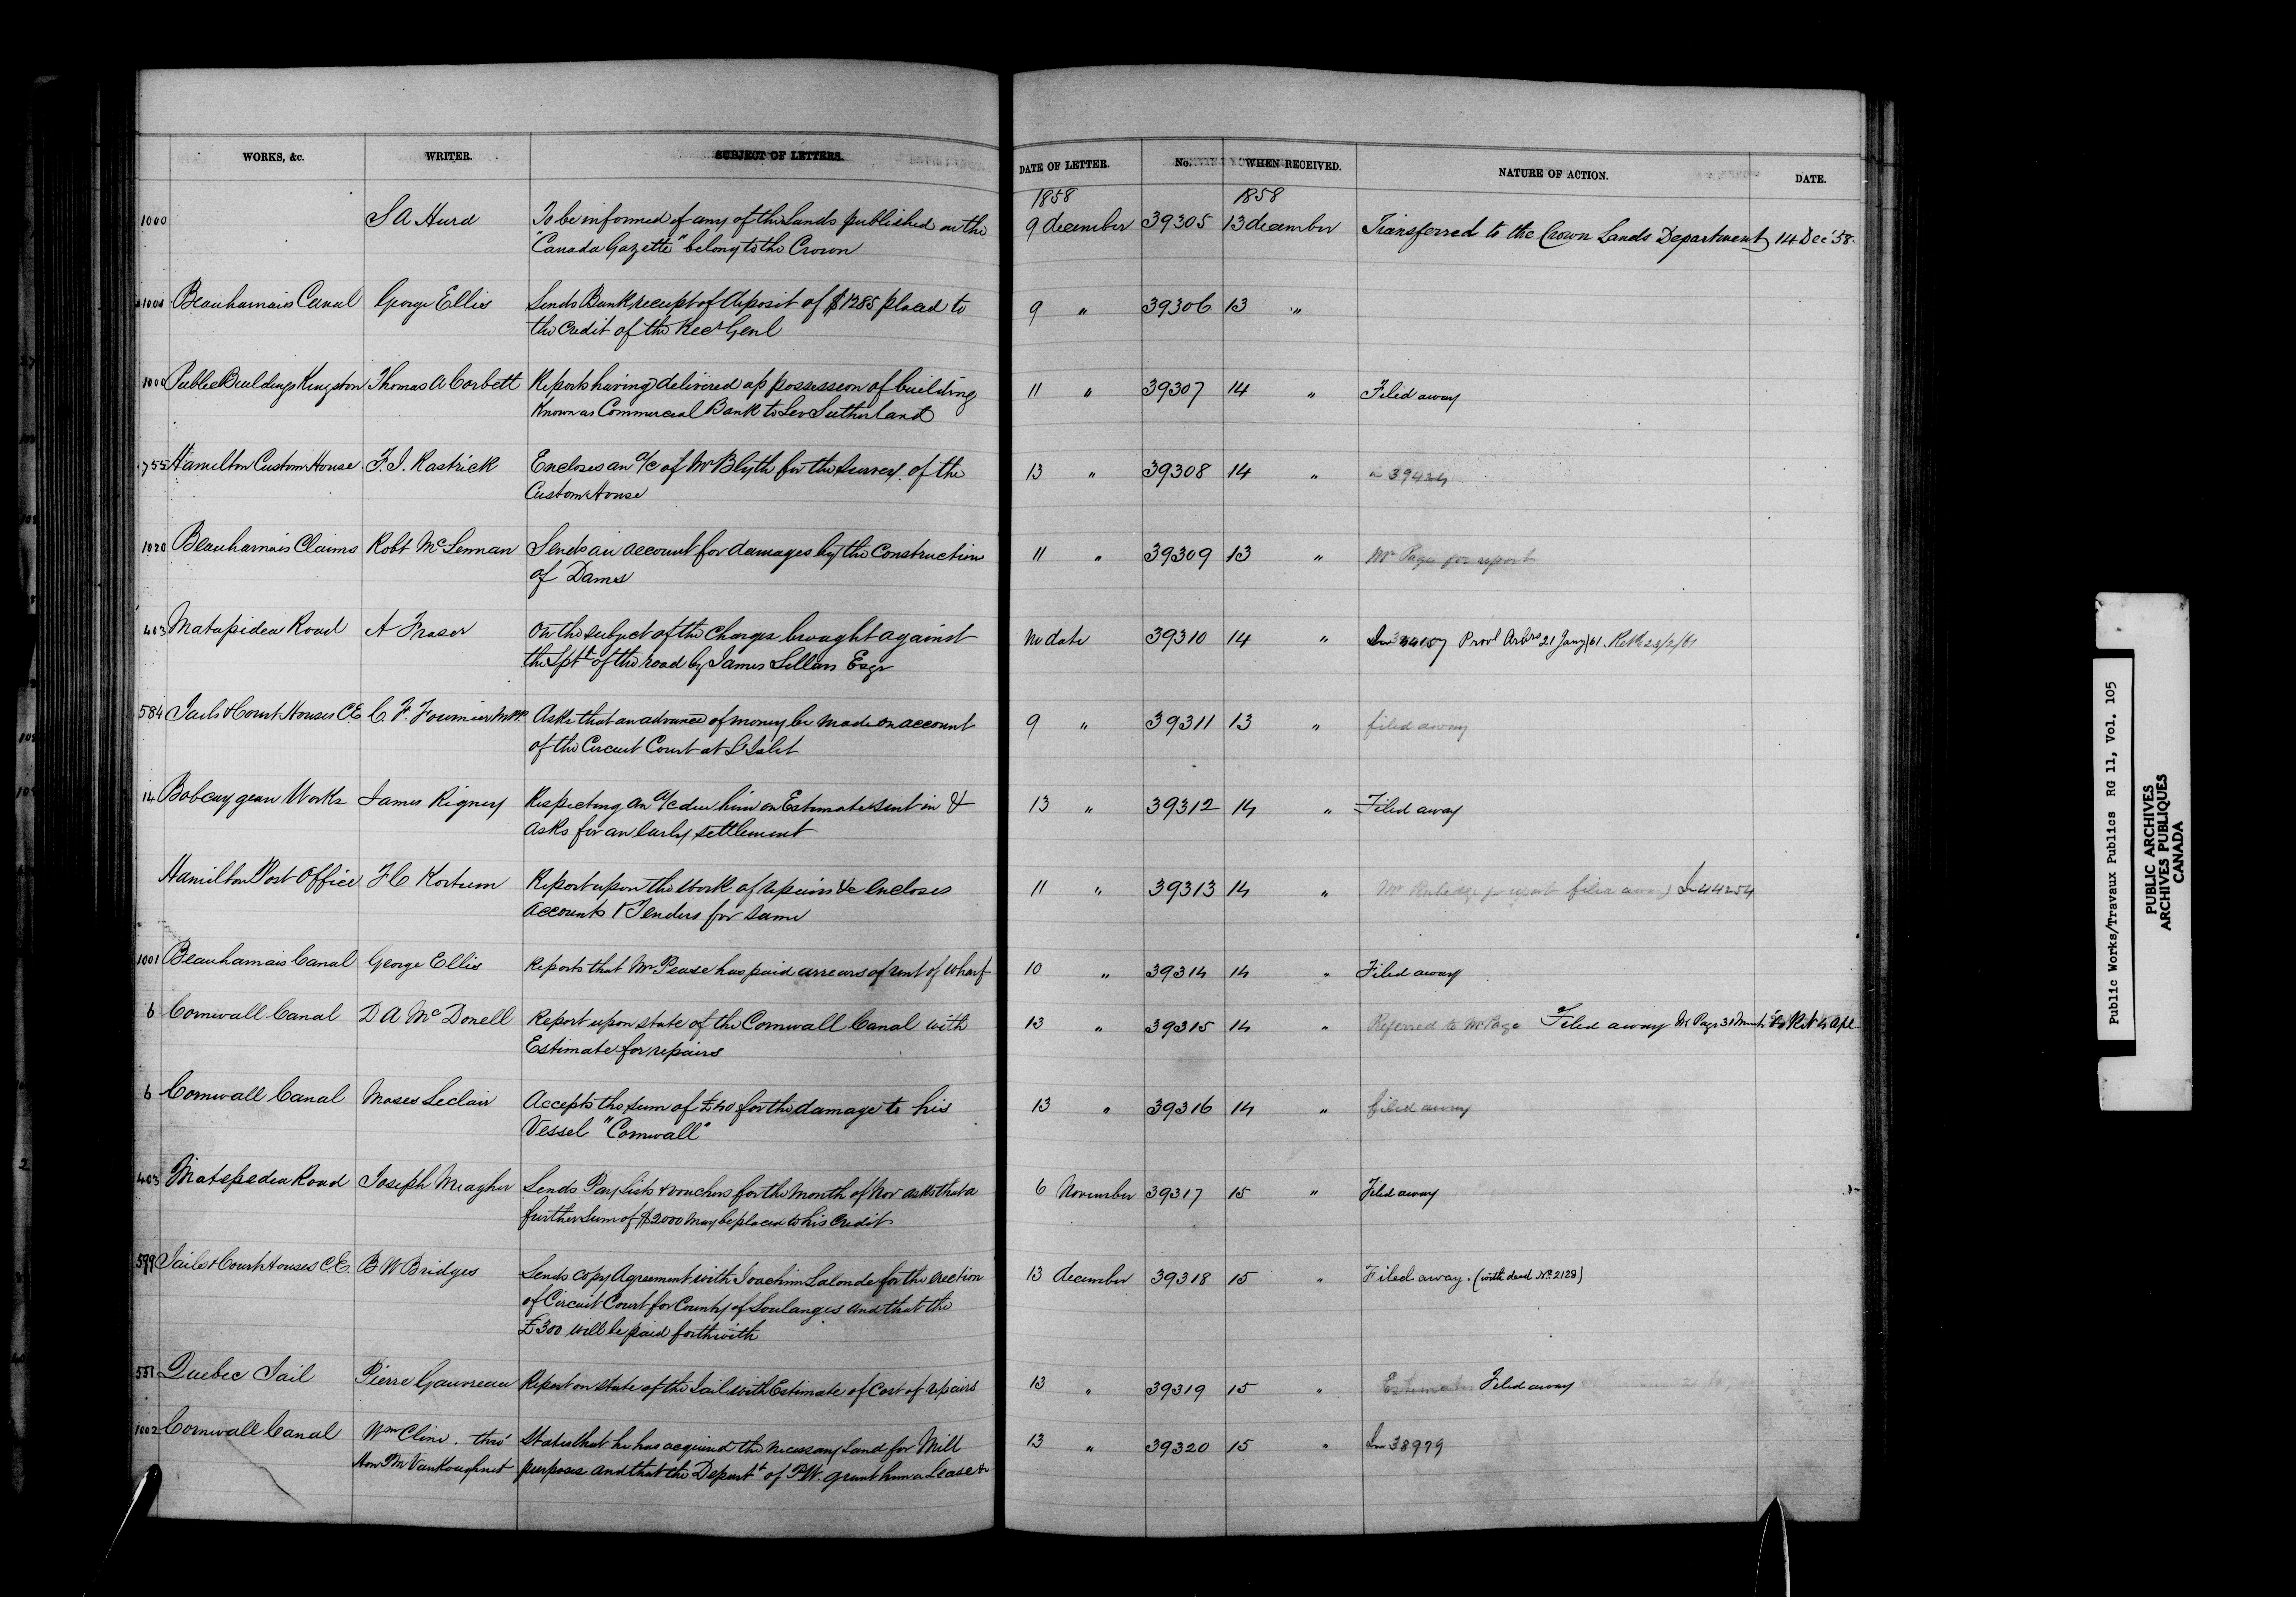 WORKS, &c. WRITER. SUBJECT OF LETTERS. DATE OF LETTER. No. WHEN RECEIVED. NATURE OF ACTION. DATE.
1858 1858
1000 S A Hurd To be informed of any of the Lands published in the 9 december 39305 13 december Transferred to the Crown Lands Department 14 Dec' 58.
"Canada Gazette" belong to the Crown
Beauharnais Canal George Ellis Sends Bank receipt of deposit of $1285 placed to 9 " 39306 13 "
the credit of the Recr Genl
Public Buildings Kingston Thomas A Corbett Reports having delivered up possession of building 11 " 39307 14 " Filed away
Known as Commercial Bank to Sutherland
755 Hamilton Custom House F. J. Rastrick Encloses an a/c of Mr Blyth for the survey of the 13 " 39308 14 "
Custom House
1020 Beauharnais Claims Robt McLennan Sends an account for damages by the construction 11 " 39309 13 " Mr Page for report
of Dams
403 Matapidea Road A Fraser On the subject of the charges brought against No date 39310 14 " Provl Arbrs 21 Jany/61
the Sptt of the road by James Sellars Esqr
584 Jails & Court Houses C.E. C. F. Fournier M.P.P. Asks that an advance of money be made on account 9 " 39311 13 " filed away
of the Circuit Court at L'Islet
14 Bobcaygean Works James Rigney Respecting an a/c due him on Estimate sent in & 13 " 39312 14 " Filed away
asks for an early settlement
Hamilton Post Office F C Kortum Report upon the work of repairs &c encloses 11 " 39313 14 " Mr Rubidge for report filed away In 44254
accounts & Tenders for same
1001 Beauharnais Canal George Ellis Reports that Mr Pease has paid arrears of rent of wharf 10 " 39314 14 " Filed away
6 Cornwall Canal D A McDonell Report upon state of the Cornwall Canal with 13 " 39315 14 " Referred to Mr Page Filed away Mr Page 31
Estimate for repairs
6 Cornwall Canal Moses Leclair Accepts the sum of £40 for the damage to his 13 " 39316 14 " filed away
Vessel "Cornwall"
403 Matepedea Road Joseph Meagher Sends Pay Lists & vouchers for the month of Nov asks that a 6 November 39317 15 " Filed away
further sum of $2000 may be placed to his credit
599 Jails & Court Houses C.E. B W Bridges Sends copy Agreement with Joachim Lalonde for the erection 13 december 39318 15 " Filed away. (with deed No. 2128)
of Circuit Court for County of Soulanges and that the
£300 will be paid forthwith
551 Quebec Jail Pierre Gauvreau Report on state of the Jail with Estimate of cost of repairs 13 " 39319 15 " Estimates Filed away
1002 Cornwall Canal Wm Cline. thro' States that he has acquired the necessary land for Mill 13 " 39320 15 " In 38979
Hon P M Vankoughnet purposes and that the Departt of P.W. grant him a Lease &c
Public Works/Travaux Publics RG 11, Vol. 105
PUBLIC ARCHIVES
ARCHIVES PUBLIQUES
CANADA